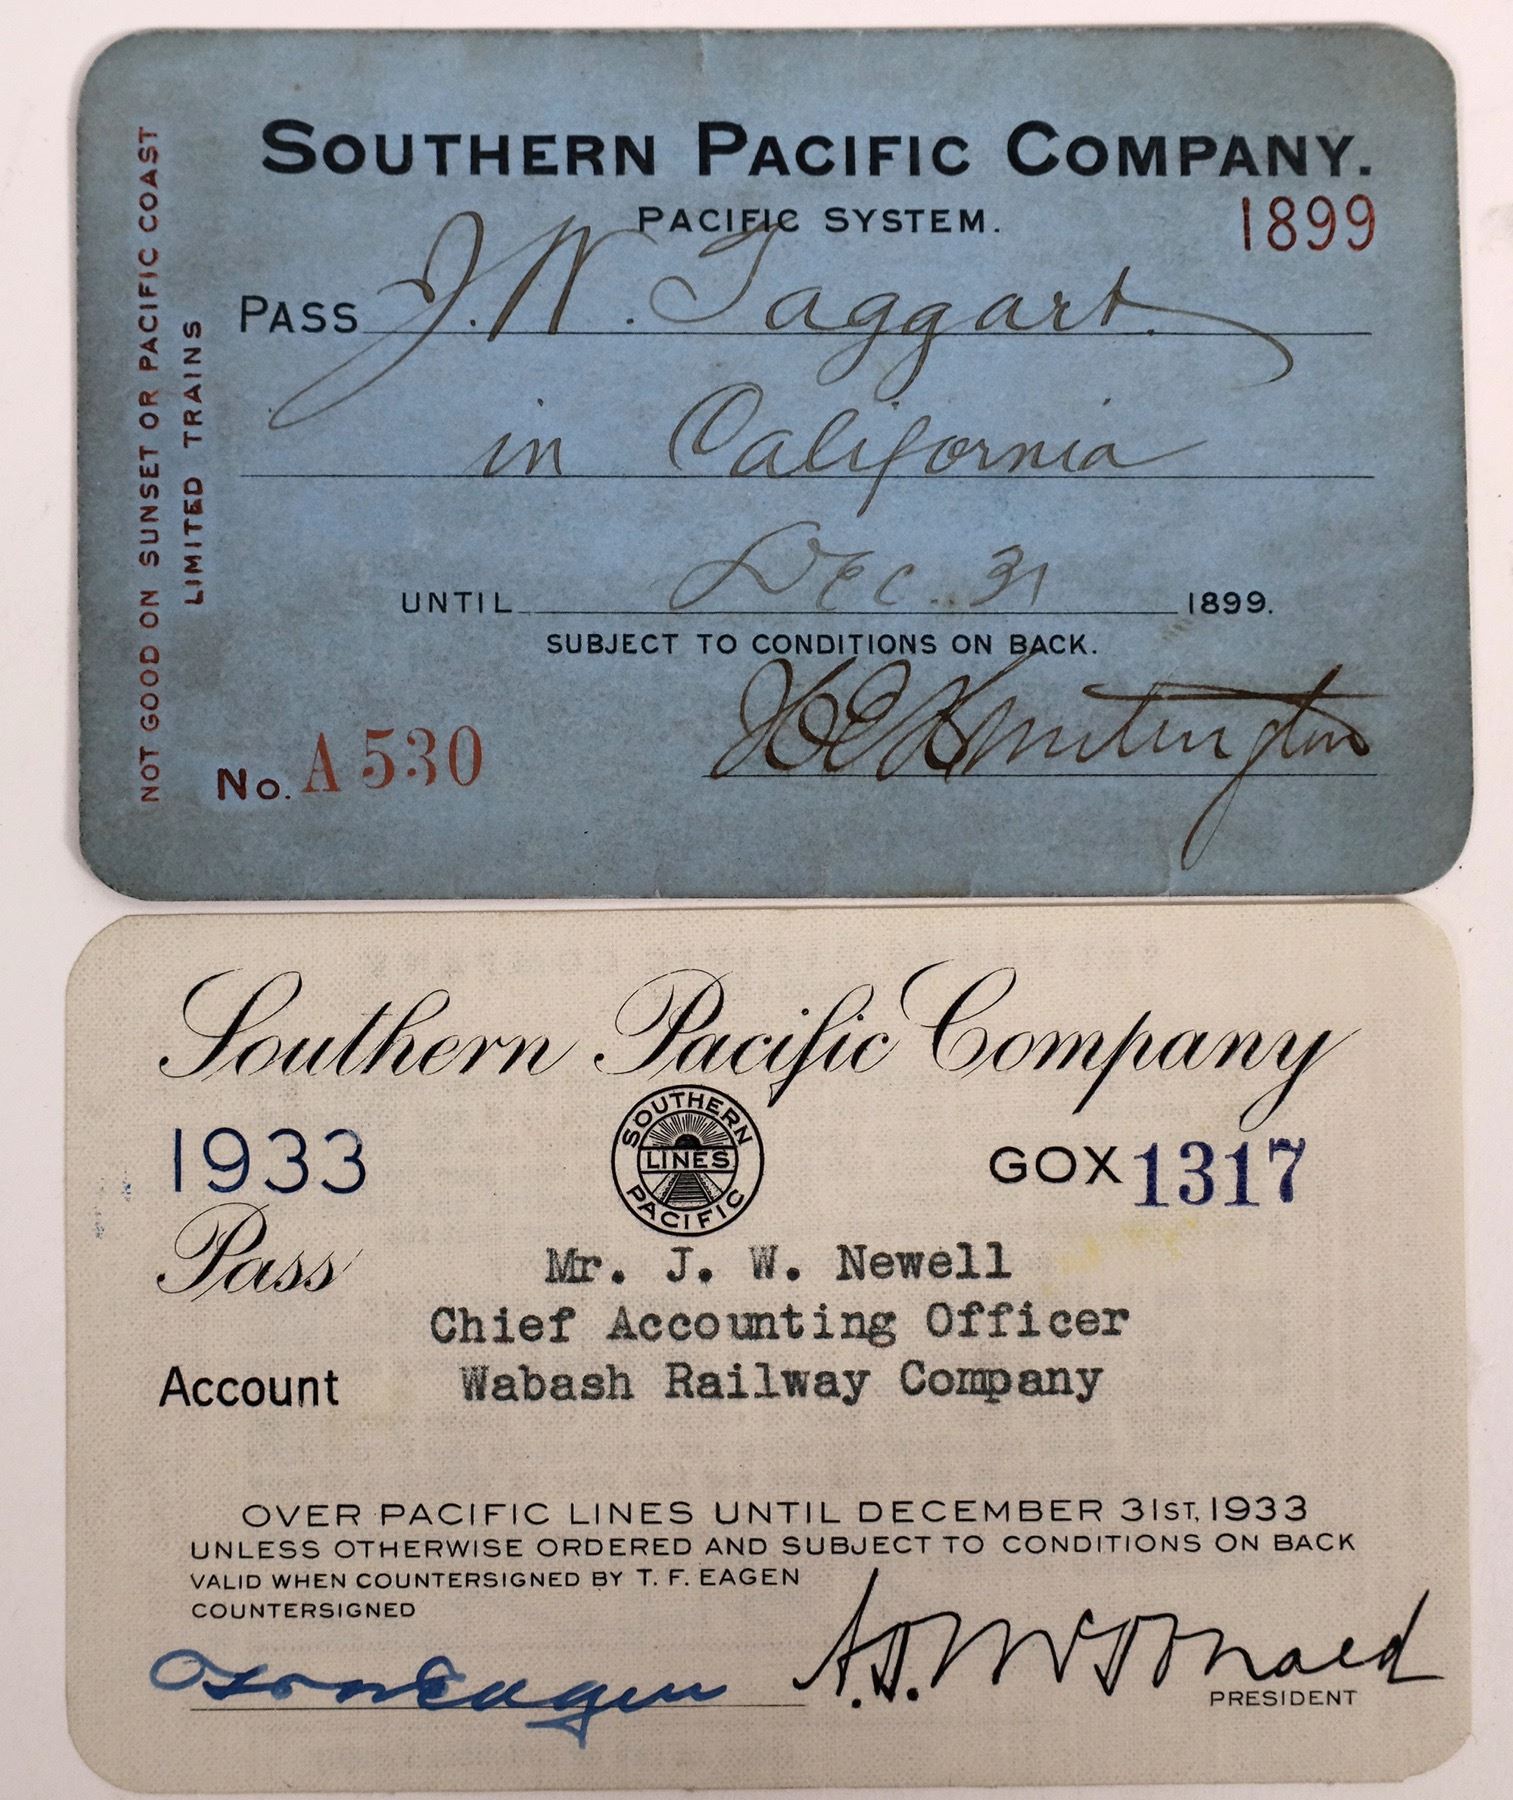 SOUTHERN PACIFIC COMPANY.
PACIFIC SYSTEM.
1899
PASS J. W. Taggart.
in California
UNTIL Dec. 31 1899.
SUBJECT TO CONDITIONS ON BACK.
H E Huntington
No. A 530
NOT GOOD ON SUNSET OR PACIFIC COAST
LIMITED TRAINS
Southern Pacific Company
1933
SOUTHERN PACIFIC
LINES
GOX 1317
Pass Mr. J. W. Newell
Chief Accounting Officer
Account Wabash Railway Company
OVER PACIFIC LINES UNTIL DECEMBER 31ST, 1933
UNLESS OTHERWISE ORDERED AND SUBJECT TO CONDITIONS ON BACK
VALID WHEN COUNTERSIGNED BY T. F. EAGEN
COUNTERSIGNED
Eagen
A. D. McDonald
PRESIDENT